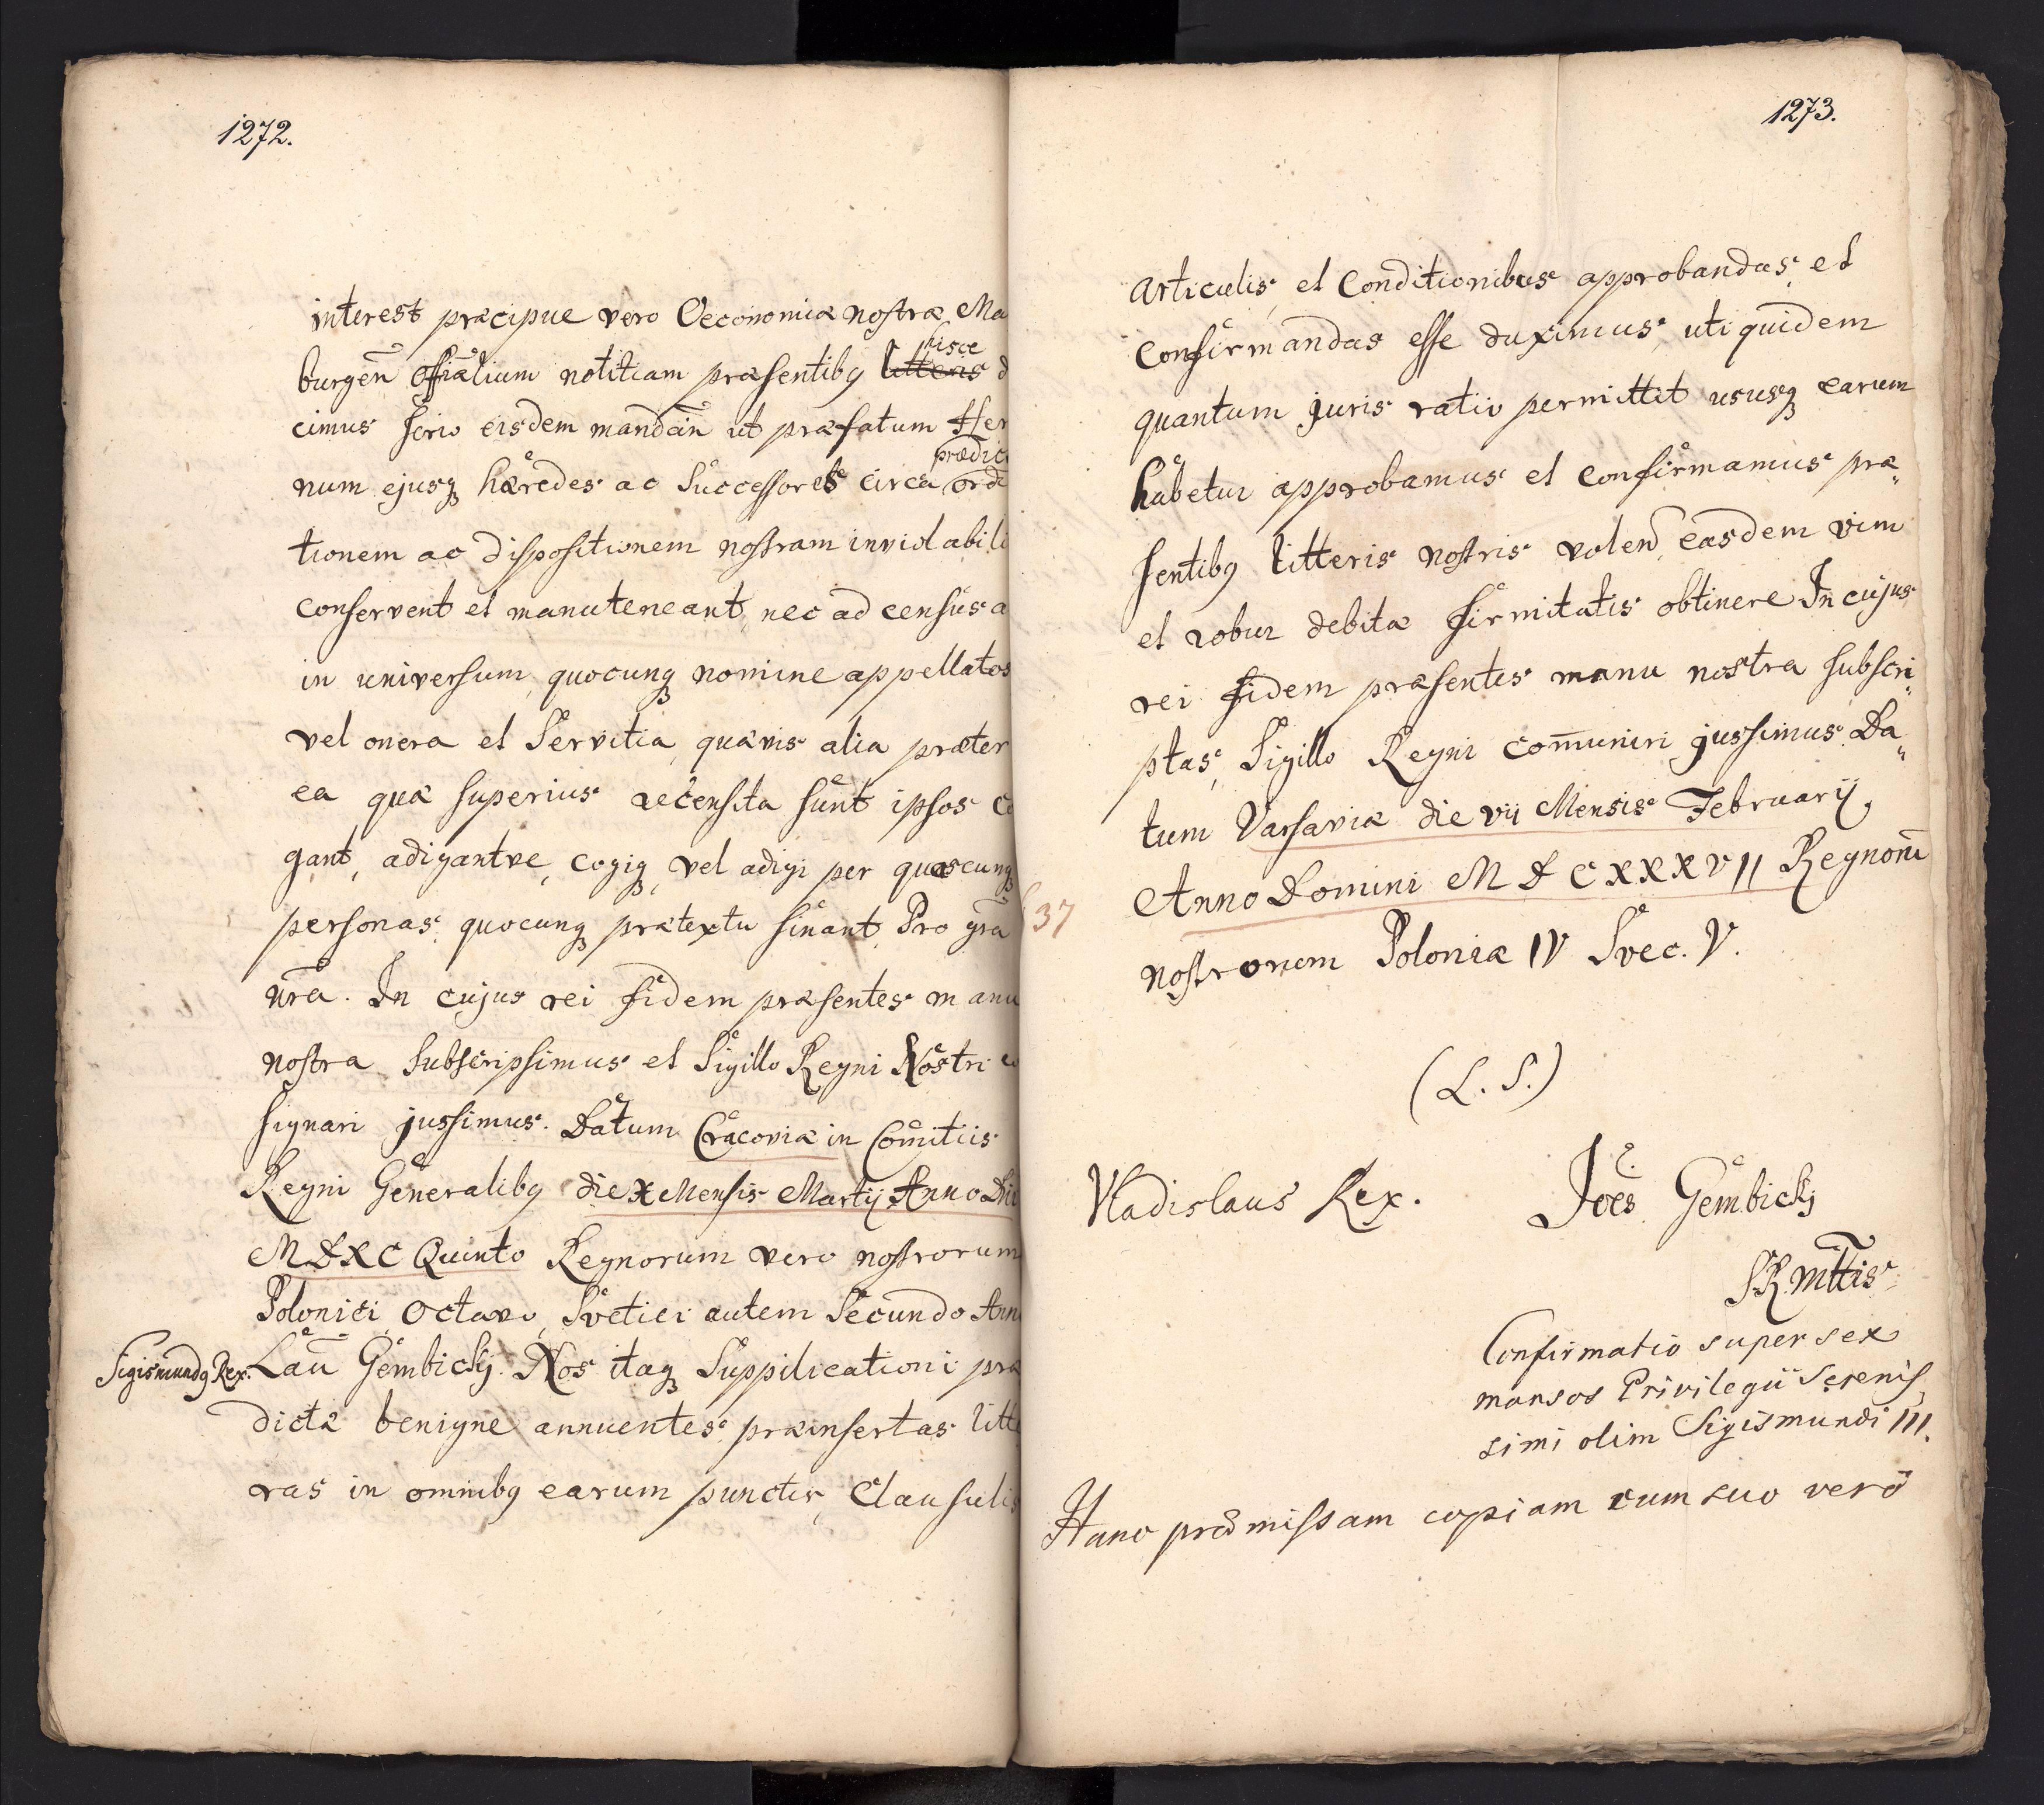 1272.
interest præcipue vero Oeconomiæ nostræ Ma
hisce
burgen̄ Offialium notitiam præsentibq litteris d
cimus serio eisdem mandan̄ ut præfatum Her
prædic
num ejusq hæredes ac Successores circa ordi
tionem ac dispositionem nostram inviolabili
conservent et manuteneant, nec ad census a
in universum, quocunq nomine appellatos
vel onera et Servitia, quævis alia præter
ea quæ superius recensita sunt ipsos co
gant, adigantve, cogiq, vel adigi per quascunq
personas, quocunq prætextu sinant. Pro gra
nra. In cujus rei fidem præsentes manu
nostra subscripsimus et Sigillo Regni Nostri co
signari jussimus. Datum Cracoviæ in Comitiis
Regni Generalibq die X Mensis Martij Anno Dni
MDXC Quinto Regnorum vero nostrorum
Polonici Octavo, Svetici autem Secundo Ann
Sigismundq Rex. Lau Gembicky. Nos itaq Suppilicationi præ
dictæ benigne annuentes, præinsertas litte
ras in omnibq earum punctis, Clausulis
1273.
articulis, et Conditionibus approbandas, et
confirmandas esse duximus, uti quidem
quantum juris ratio permittit ususq earum
habetur approbamus et confirmamus præ„
sentibq litteris nostris volen̄, easdem vim
et robur debitæ firmitatis obtinere In cujus
rei fidem præsentes manu nostra subscri„
ptas, Sigillo Regni com̄uniri jussimus. Da„
tum Varsaviæ die vii Mensis Februarij,
Anno Domini MDCXXXVII Regnoru̅
37
nostrorum Poloniæ IV Svec. V.
(L. S.)
Vladislaus Rex. Joes Gembicky
S.R. Mttis
Confirmatio super sex
mansos Privilegii Serenis„
simi olim Sigismundi III.
Hanc præmissam copiam cum suo vero